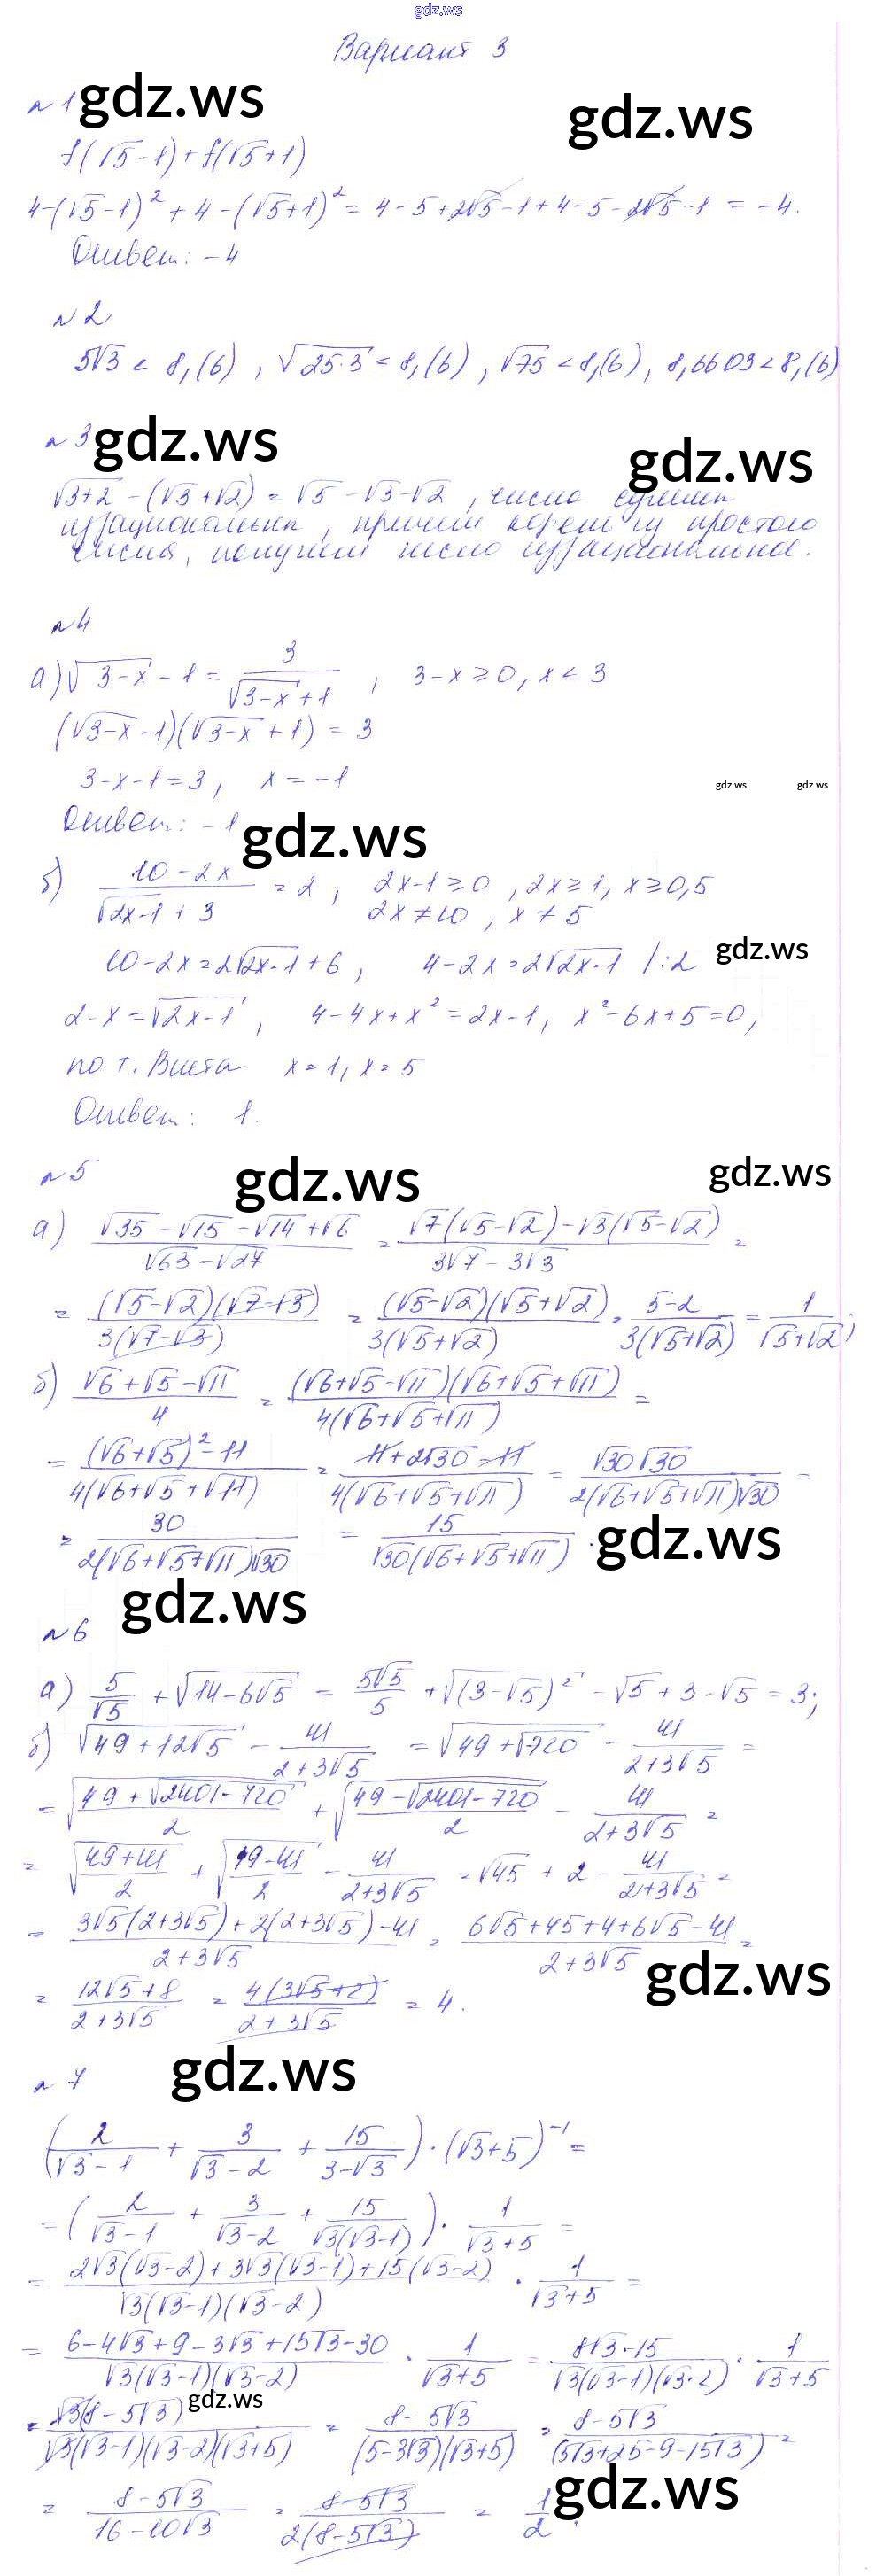 gdz.ws
Вариант 3
№ 1 gdz.ws gdz.ws
f(√5-1)+f(√5+1)
4-(√5-1)²+4-(√5+1)²=4-5+2√5-1+4-5-2√5-1=-4.
Ответ: -4
№ 2
5√3 < 8,(6), √(25·3) < 8,(6), √75 < 8,(6), 8,6603 < 8,(6)
№ 3 gdz.ws gdz.ws
√(3+2) - (√3+√2) = √5-√3-√2, число
иррациональным, причем простого
числа, получим число иррациональное.
№4
а) √(3-x) - 1 = 3/(√(3-x)+1), 3-x ≥ 0, x ≤ 3
(√(3-x)-1)(√(3-x)+1) = 3
3-x-1=3, x=-1
gdz.ws gdz.ws
Ответ: -1 gdz.ws
б) (10-2x)/(√(2x-1)+3) = 2, 2x-1≥0, 2x≥1, x≥0,5
2x≠10, x≠5
10-2x=2√(2x-1)+6, 4-2x=2√(2x-1) /:2 gdz.ws
2-x=√(2x-1), 4-4x+x²=2x-1, x²-6x+5=0,
по т. Виета x=1, x=5
Ответ: 1.
№5 gdz.ws gdz.ws
а) (√35-√15-√14+√6)/(√63-√27) = (√7(√5-√2)-√3(√5-√2))/(3√7-3√3) =
= ((√5-√2)(√7-√3))/(3(√7-√3)) = ((√5-√2)(√5+√2))/(3(√5+√2)) = (5-2)/(3(√5+√2)) = 1/(√5+√2);
б) (√6+√5-√11)/4 = ((√6+√5-√11)(√6+√5+√11))/(4(√6+√5+√11)) =
= ((√6+√5)²-11)/(4(√6+√5+√11)) = (11+2√30-11)/(4(√6+√5+√11)) = (√30√30)/(2(√6+√5+√11)√30) =
= 30/(2(√6+√5+√11)√30) = 15/(√30(√6+√5+√11)). gdz.ws
gdz.ws
№6
а) 5/√5 + √(14-6√5) = 5√5/5 + √((3-√5)²) = √5+3-√5 = 3;
б) √(49+12√5) - 41/(2+3√5) = √(49+√720) - 41/(2+3√5) =
= √((49+√(2401-720))/2) + √((49-√(2401-720))/2) - 41/(2+3√5) =
= √((49+41)/2) + √((49-41)/2) - 41/(2+3√5) = √45 + 2 - 41/(2+3√5) =
= (3√5(2+3√5)+2(2+3√5)-41)/(2+3√5) = (6√5+45+4+6√5-41)/(2+3√5) =
gdz.ws
= (12√5+8)/(2+3√5) = (4(3√5+2))/(2+3√5) = 4.
№ 7 gdz.ws
(2/(√3-1) + 3/(√3-2) + 15/(3-√3))·(√3+5)⁻¹ =
= (2/(√3-1) + 3/(√3-2) + 15/(√3(√3-1)))·1/(√3+5) =
= (2√3(√3-2)+3√3(√3-1)+15(√3-2))/(√3(√3-1)(√3-2)) · 1/(√3+5) =
= (6-4√3+9-3√3+15√3-30)/(√3(√3-1)(√3-2)) · 1/(√3+5) = (8√3-15)/(√3(√3-1)(√3-2)) · 1/(√3+5)
gdz.ws
= (√3(8-5√3))/(√3(√3-1)(√3-2)(√3+5)) = (8-5√3)/((5-3√3)(√3+5)) = (8-5√3)/(5√3+25-9-15√3) =
= (8-5√3)/(16-10√3) = (8-5√3)/(2(8-5√3)) = 1/2. gdz.ws